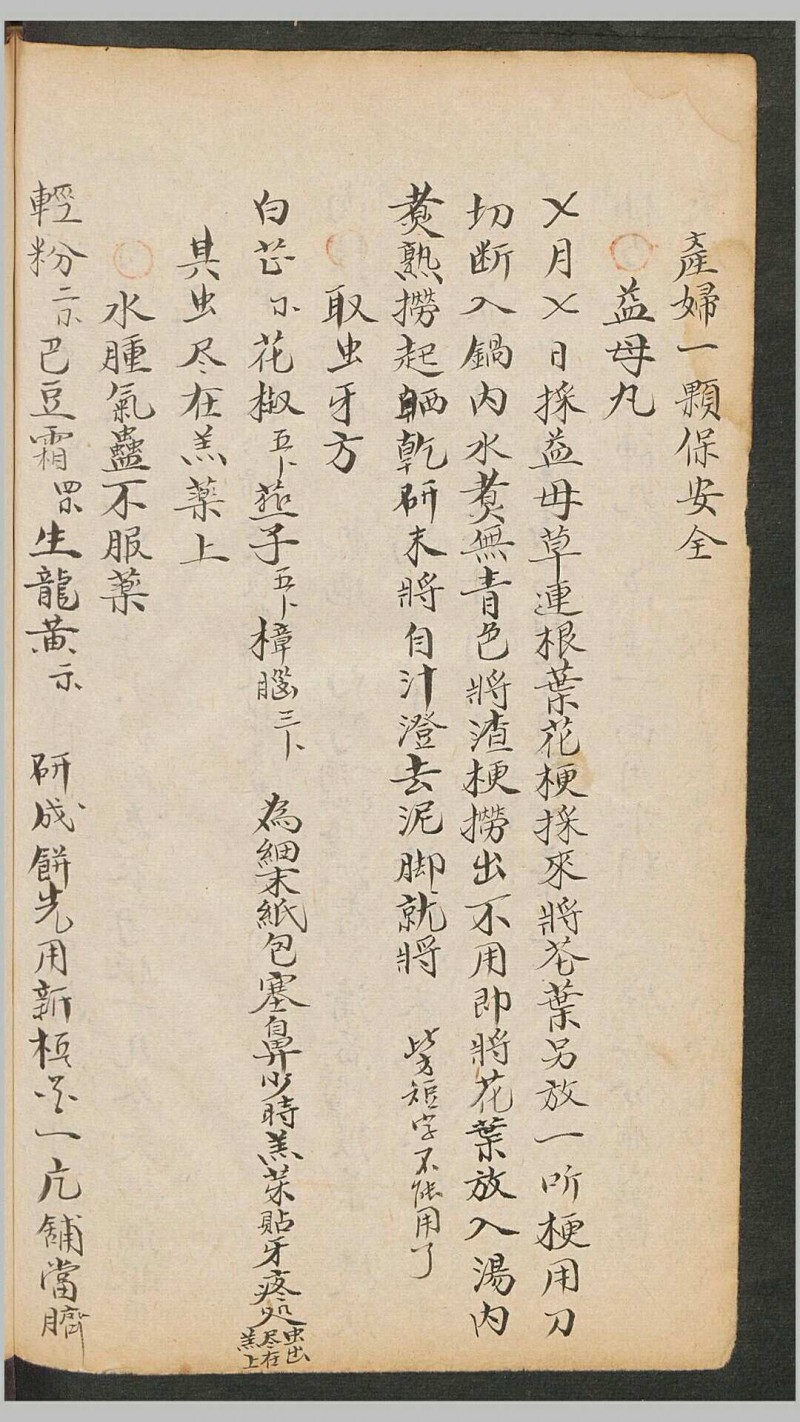 產婦一顆保安全
益母丸
乂月乂日採益母草連根葉花梗採來將花葉另放一听梗用刀
切断入鍋内水煑無青色將渣梗撈出不用即將花葉放入湯内
煑熟撈起晒乾研末將自汁澄去泥脚就將 此方短字不能用了
取虫牙方
白芷 花椒五卜 子五卜樟腦三卜 為細末紙包塞鼻少時羔菜貼牙疼处虫出尽在羔上
其虫尽在羔藥上
水腫氣蠱不服藥
輕粉二 巴豆霜四 生龍黃 研成餅先用新 一 舖當臍